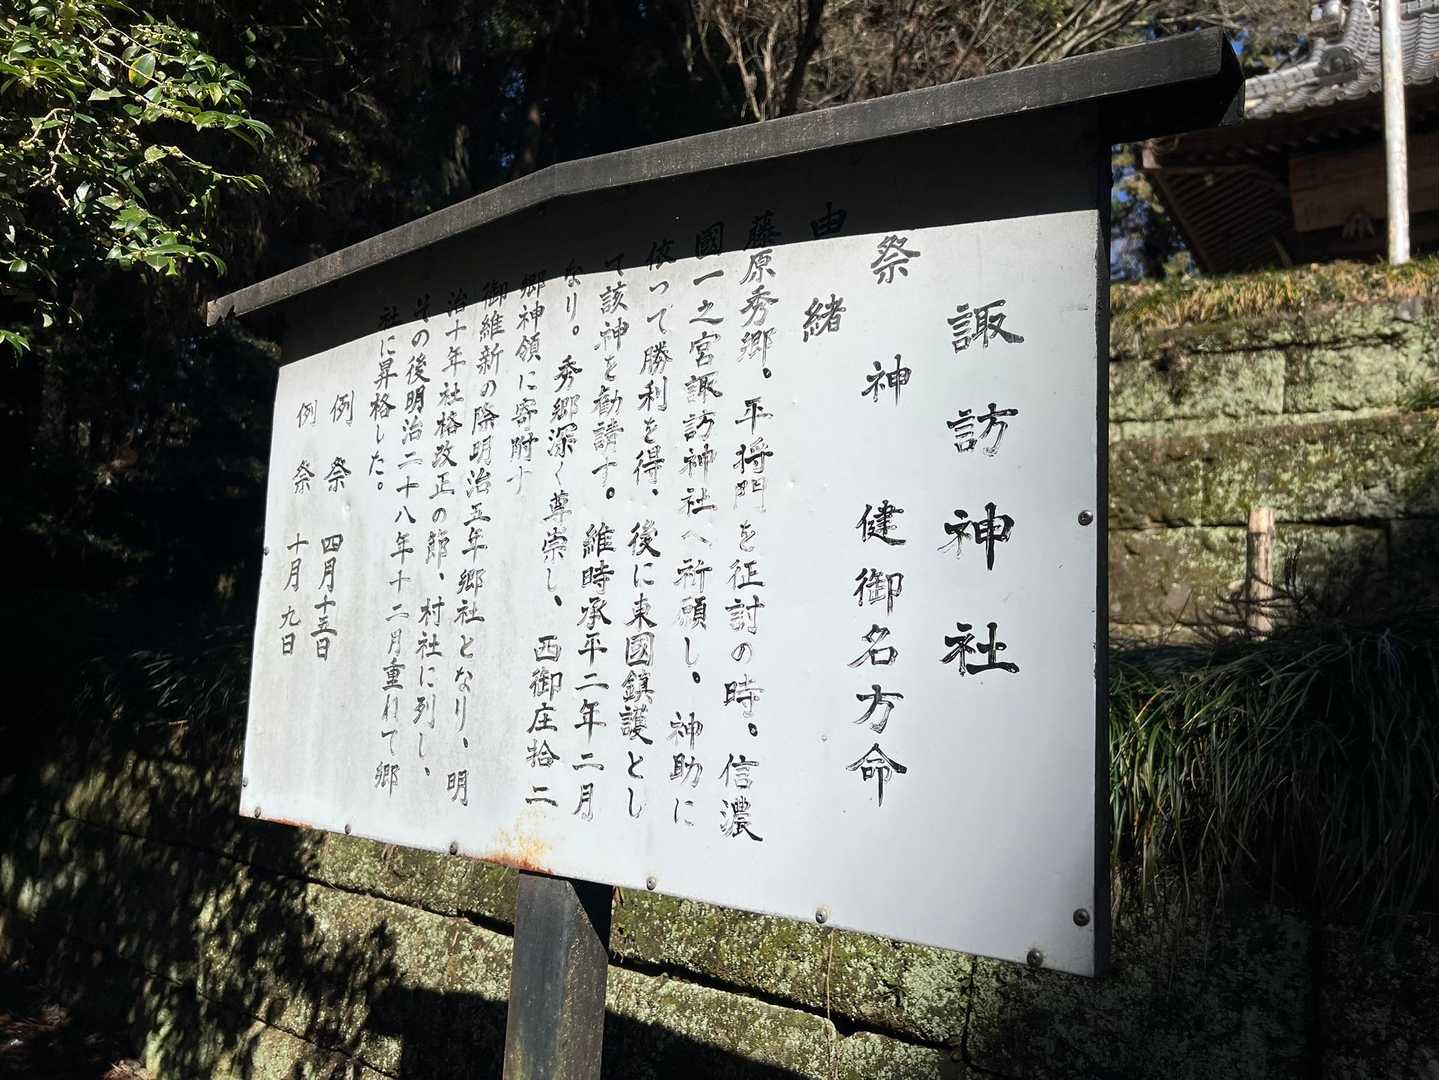 諏訪神社
祭神 健御名方命
由緒
藤原秀郷。平将門を征討の時。信濃
國一之宮諏訪神社へ祈願し。神助に
依って勝利を得、後に東國鎮護とし
て該神を勧請す。維時承平二年二月
なり。秀郷深く尊崇し、西御庄拾二
郷神領に寄附す
御維新の際明治五年郷社となり、明
治十年社格改正の節、村社に列し、
その後明治二十八年十二月重ねて郷
社に昇格した。
例祭 四月十五日
例祭 十月九日